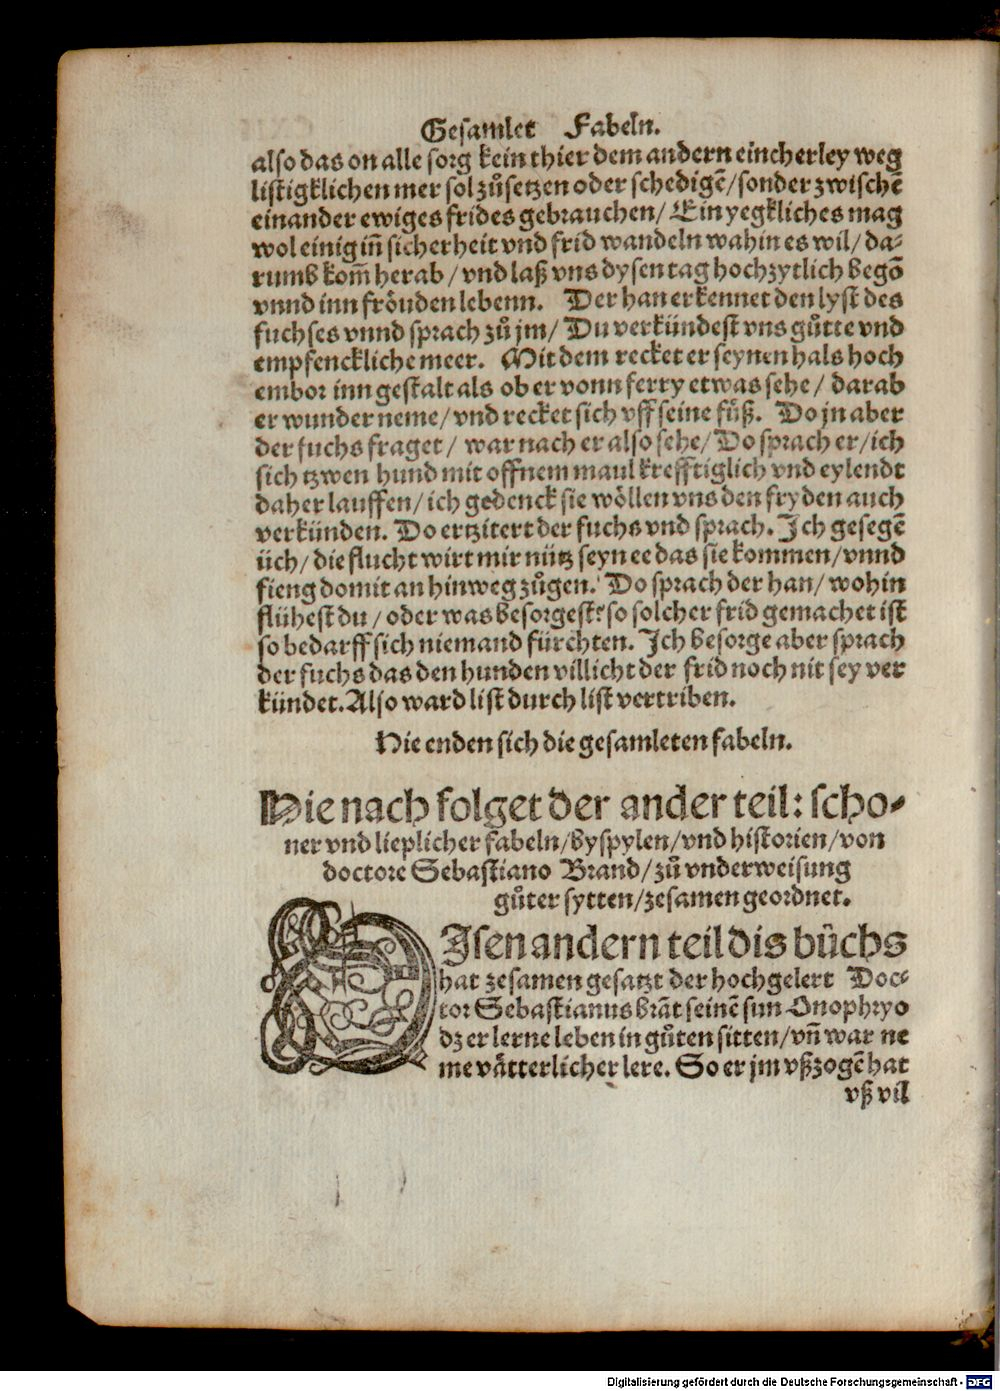 Gesamlet Fabeln.
also das on alle sorg kein thier dem andern eincherley weg
listigklichen mer sol zůsetzen oder schedigē/ sonder zwischē
einander ewiges frides gebrauchen/ Ein yegkliches mag
wol einig iñ sicherheit vnd frid wandeln wahin es wil/ da-
rumb kom̄ herab/ vnd laß vns dysen tag hochzytlich begō
vnnd inn fröuden lebenn. Der han erkennet den lyst des
fuchses vnnd sprach zů jm/ Du verkündest vns gůtte vnd
empfenckliche meer. Mit dem recket er seynen hals hoch
embor inn gestalt als ob er vonn ferry etwas sehe/ darab
er wunder neme/ vnd recket sich vff seine fůß. Do jn aber
der fuchs fraget/ war nach er also sehe/ Do sprach er/ ich
sich tzwen hund mit offnem maul krefftiglich vnd eylendt
daher lauffen/ ich gedenck sie wöllen vns den fryden auch
verkünden. Do ertzitert der fuchs vnd sprach. Ich gesegē
üch/ die flucht wirt mir nütz seyn ee das sie kommen/ vnnd
fieng domit an hinweg zůgen. Do sprach der han/ wohin
flühest du/ oder was besorgest? so solcher frid gemachet ist
so bedarff sich niemand fürchten. Ich besorge aber sprach
der fuchs das den hunden villicht der frid noch nit sey ver
kündet. Also ward list durch list vertriben.
Hie enden sich die gesamleten fabeln.
Hie nach folget der ander teil: scho-
ner vnd lieplicher fabeln/ byspylen/ vnd historien/ von
doctore Sebastiano Brand/ zů vnderweisung
gůter sytten/ zesamen geordnet.
DIsen andern teil dis bůchs
hat zesamen gesatzt der hochgelert Doc-
tor Sebastianus brāt seinē sun Onophryo
dz er lerne leben in gůten sitten/ vñ war ne
me vätterlicher lere. So er jm vßzogē hat
vß vil
Digitalisierung gefördert durch die Deutsche Forschungsgemeinschaft - DFG